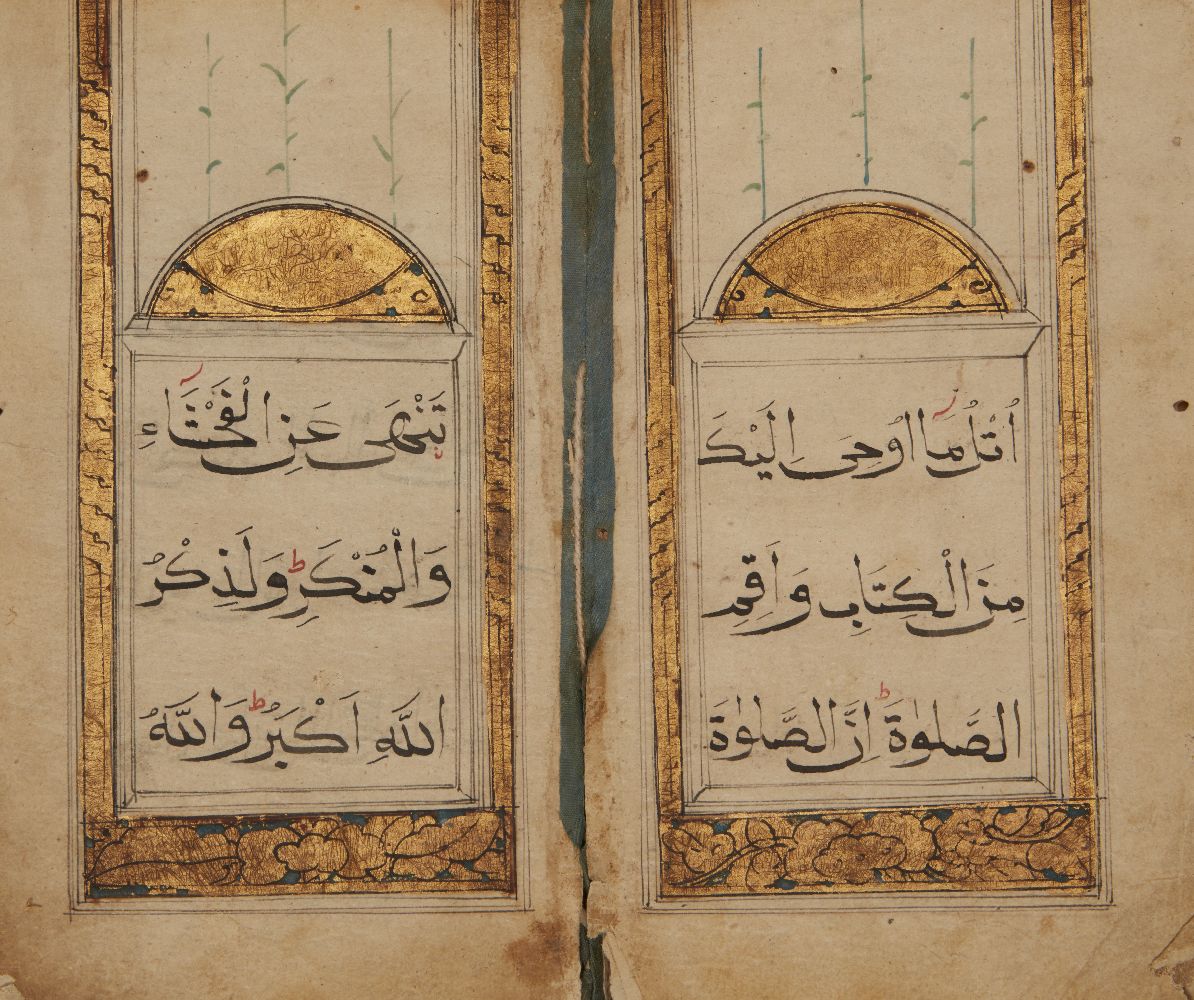 اُتْلُ مَا اُوْحِیَ اِلَيْكَ
مِنَ الْكِتَابِ وَاَقِمِ
الصَّلٰوةَ ط اِنَّ الصَّلٰوةَ
تَنْهٰى عَنِ الْفَحْشَاءِ
وَالْمُنْكَرِ ط وَلَذِكْرُ
اللّٰهِ اَكْبَرُ ط وَاللّٰهُ